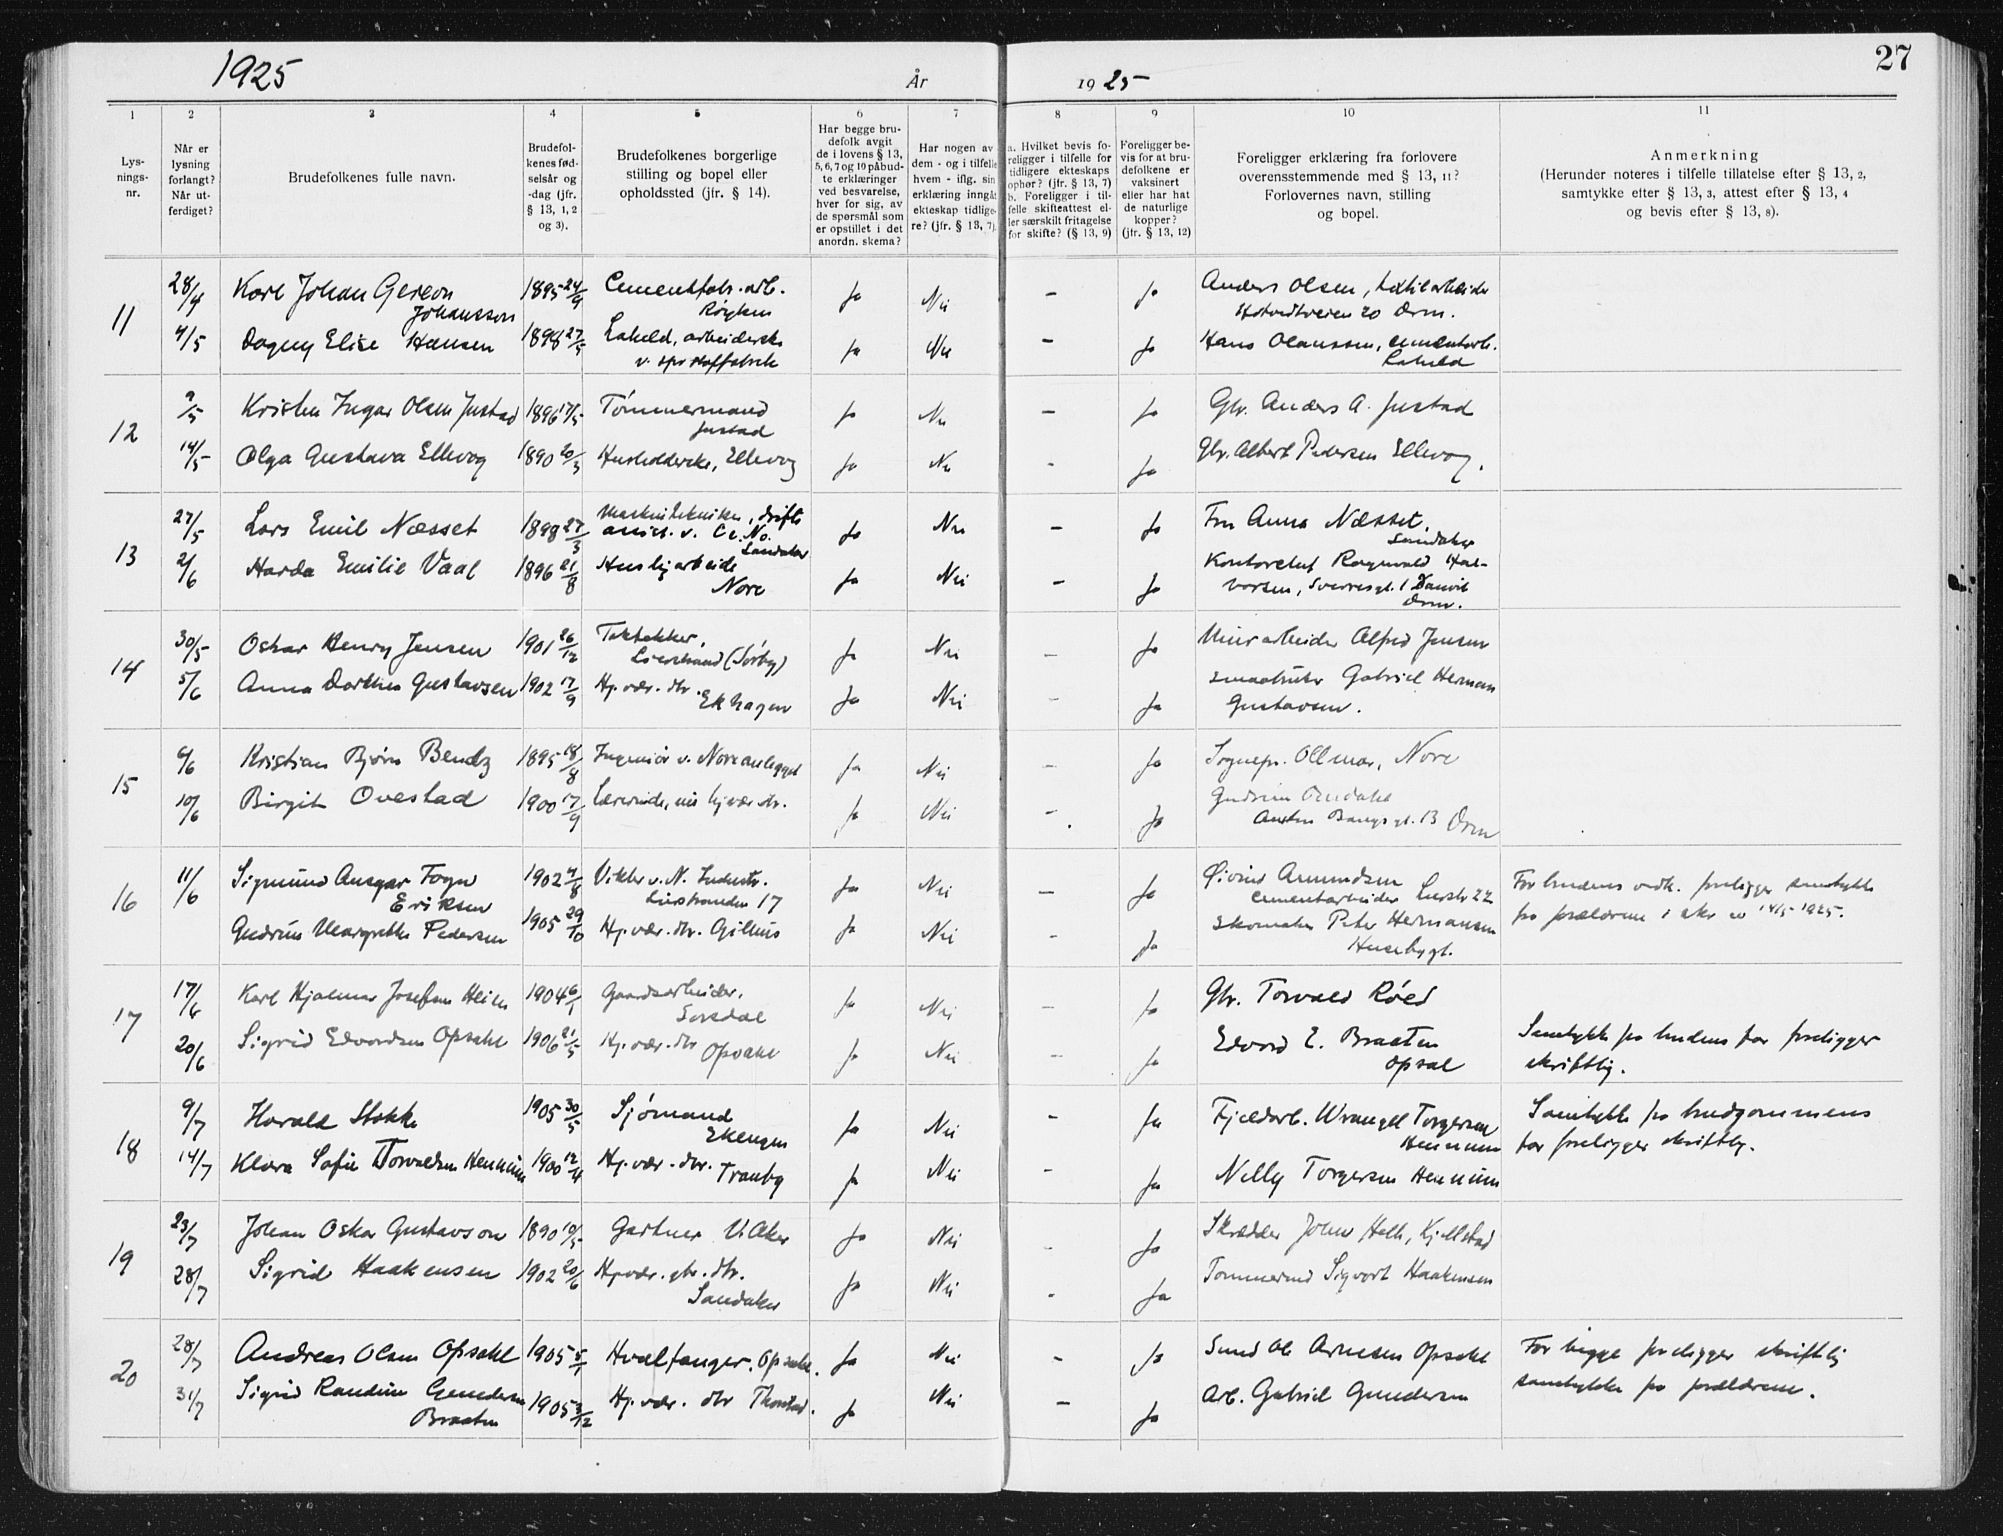 1925
År
19 25
27
1
2
3
4
5
6
7
8
9
10
11
Lys-
nings-
nr.
Når er
lysning
forlangt?
Når ut-
ferdiget?
Brudefolkenes fulle navn.
Brudefol-
kenes fød-
selsår og
-dag (jfr.
§ 13, 1, 2
og 3).
Brudefolkenes borgerlige
stilling og bopel eller
opholdssted (jfr. § 14).
Har begge bru-
defolk avgit
de i lovens § 13,
5, 6, 7 og 10 påbud-
te erklæringer
ved besvarelse,
hver for sig, av
de spørsmål som
er opstillet i det
anordn. skema?
Har nogen av
dem - og i tilfelle
hvem - iflg. sin
erklæring inngåt
ekteskap tidlige-
re? (jfr. § 13, 7).
a. Hvilket bevis fo-
religger i tilfelle for
tidligere ekteskaps
ophør? (jfr. § 13, 7)
b. Foreligger i til-
felle skifteattest el-
ler særskilt fritagelse
for skifte? (§ 13, 9)
Foreligger be-
vis for at bru-
defolkene er
vaksinert
eller har hat
de naturlige
kopper?
(jfr. § 13, 12)
Foreligger erklæring fra forlovere
overensstemmende med § 13, 11?
Forlovernes navn, stilling
og bopel.
Anmerkning
(Herunder noteres i tilfelle tillatelse efter § 13, 2,
samtykke efter § 13, 3, attest efter § 13, 4
og bevis efter § 13, 8).
11
28/4 Karl Johan Gereon
Johansson 1895 24/9 Cementfabr. arb.
Røyken Ja Nei - Ja Anders Olsen,
Hotvedtveien 20 Drm.
4/5 Dagny Elise Hansen 1898 27/5 Laheld, arbeiderske
Ja Nei - Ja Hans Olaussen, cementarb.
Laheld
12
9/5 Kristen Ingar Olsen Justad 1896 17/5 Tømmermand
Justad Ja Nei - Ja Gbr. Anders A. Justad
14/5 Olga Gustava Ellevog 1890 20/3 Husholderske, Ellevog Ja Nei - Ja Gbr. Albert Pedersen Ellevog.
13
27/5 Lars Emil Næsset 1898 27/3 Maskintekniker, drifts
assist. v.
Sandaker Ja Nei - Ja Fru Anna Næsset,
Sandaker
2/6 Harda Emilie Vaal 1896 21/8 Husligarbeide
Nore Ja Nei - Ja Kontorchef Ragnvald Hal-
vorsen, Sverresgt. 1 Danvik
Drm.
14
30/5 Oskar Henry Jensen 1901 26/12 Taktekker,
Lierstrand (Sørby) Ja Nei - Ja Murarbeider Alfred Jensen
5/6 Anna Dorthea Gustavsen 1902 17/9 Hj. vær. dtr.
Ekhagen Ja Nei - Ja Smaabruker Gabriel Herman
Gustavsen.
15
6/6 Kristian Bjørn Bendz 1895 18/8 Ingeniør v. Noreanlegget Ja Nei - Ja Sognepr. Ollmar, Nore
10/6 Birgit Ovestad 1900 17/9 Lærerinde, nu hjvær. dtr. Ja Nei - Ja Gudrun
Bangsgt. 13 Drm
16
11/6 Sigmund Ansgar Fogn
Eriksen 1902 4/8 Vikler v. N. Industr.
Lierstranden 17 Ja Nei - Ja Øivind Amundsen
Cementarbeider Lierstr. 22
Gudrun Margrethe Pedersen 1905 29/10 Hj. vær. dtr. Gilhus Ja Nei - Ja Skomaker Peter Hermansen
Husebygt.
For brudens vedk. foreligger samtykke
fra forældrene i skr. av 14/5 1925.
17
17/6 Karl Hjalmar Josefsen Heien 1904 6/1 Gaardsarbeider,
Sørsdal Ja Nei - Ja Gbr. Torvald Røed
20/6 Sigrid Edvardsen Opsahl 1906 21/5 Hj. vær. dtr
Opsahl Ja Nei - Ja Edvard E. Braaten
Opsal
Samtykke fra brudens far foreligger
skriftlig.
18
9/7 Harald Stokke 1905 30/5 Sjømand
Ekengen Ja Nei - Ja Fjeldarb. Wrangell Torgersen
Hennum
14/7 Klara Sofie Torvaldsen Hennum 1900 12/4 Hj. vær. dtr. Tranby Ja Nei - Ja Nelly Torgersen Hennum
Samtykke fra brudgommens
far foreligger skriftlig.
19
23/7 Johan Oskar Gustavson 1890 10/5 Gartner Ulaker Ja Nei - Ja Skrædder John Helle, Kjellstad
28/7 Sigrid Haakensen 1902 20/6 Hjvær. gbr. dtr.
Sandaker Ja Nei - Ja Tømmermd Sigvart Haakensen
20
28/7 Andreas Olsen Opsahl 1905 5/1 Hvalfanger. Opsahl. Ja Nei - Ja Smed Ole Arnesen Opsahl
31/7 Sigrid Randine Gundersen
Braaten 1905 3/12 Hj. vær. dtr Thorstad. Ja Nei - Ja Arb. Gabriel Gundersen
For begge foreligger skriftlig
samtykke fra forældrene.